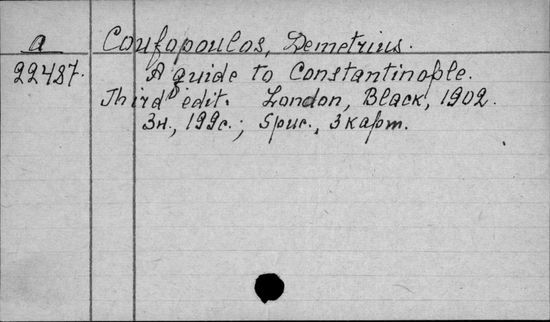 a Coufopoulos, Demetrius.
22487. A guide to Constantinople.
Third edit. London, Black, 1902.
3н., 199с.; 5рис., 3 карт.